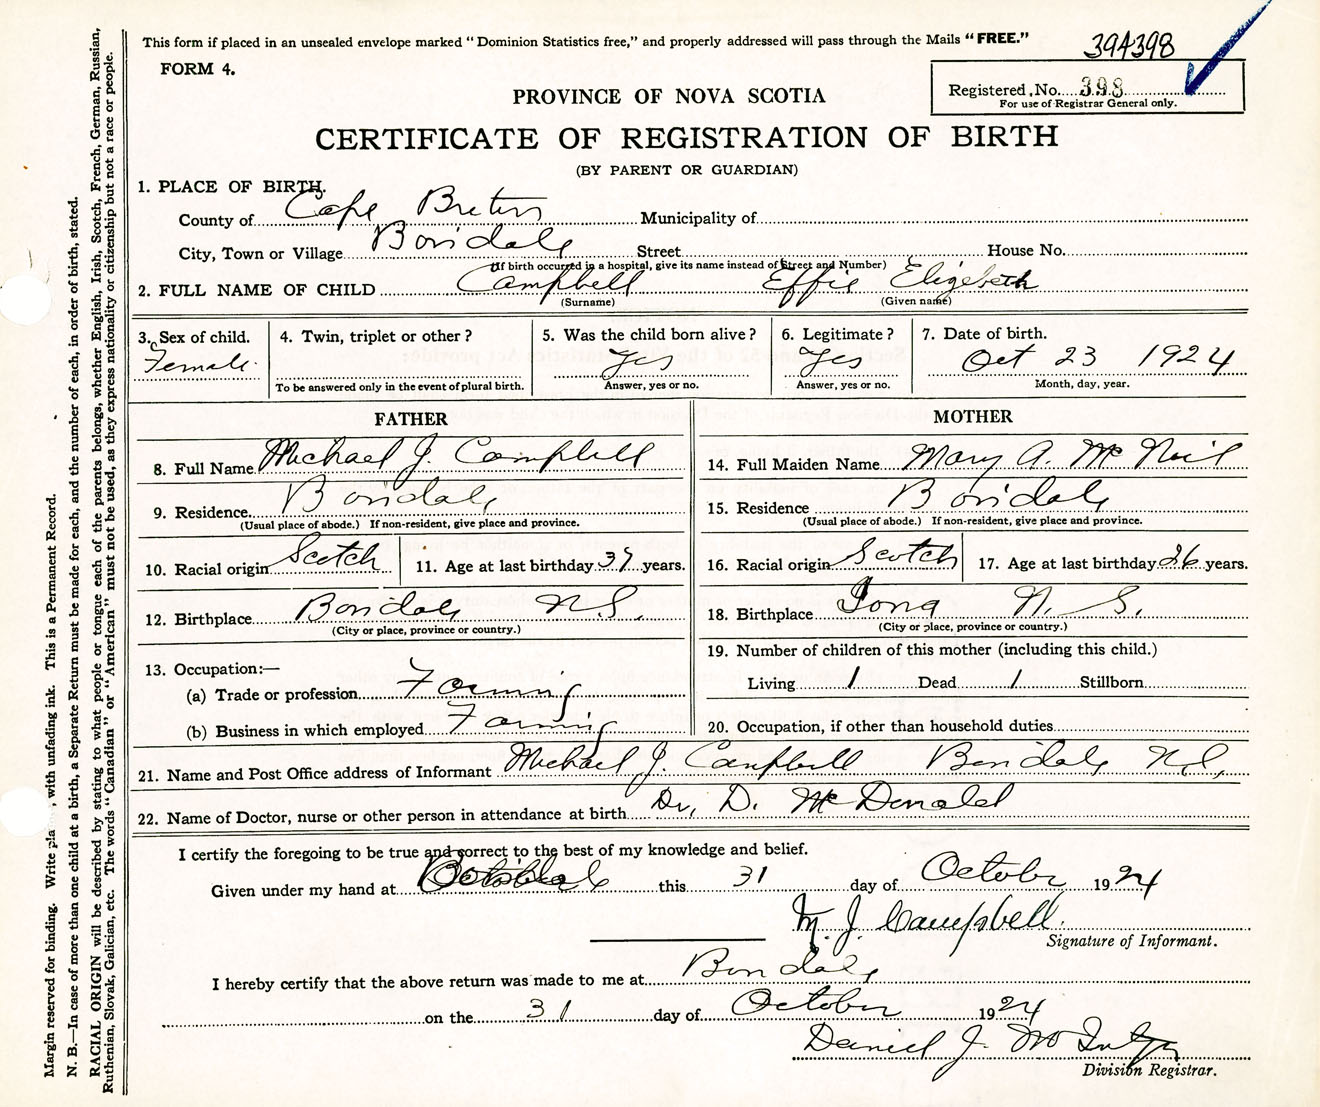 This form if placed in an unsealed envelope marked “Dominion Statistics free,” and properly addressed will pass through the Mails “FREE.”
394398
FORM 4.
Registered No. 398
For use of Registrar General only.
PROVINCE OF NOVA SCOTIA
CERTIFICATE OF REGISTRATION OF BIRTH
(BY PARENT OR GUARDIAN)
1. PLACE OF BIRTH.
County of Cape Breton Municipality of
City, Town or Village Boisdale Street House No.
(If birth occurred in a hospital, give its name instead of Street and Number)
2. FULL NAME OF CHILD Campbell Effie Elizebeth
(Surname) (Given name)
3. Sex of child. Female.
4. Twin, triplet or other?
To be answered only in the event of plural birth.
5. Was the child born alive? Yes
Answer, yes or no.
6. Legitimate? Yes
Answer, yes or no.
7. Date of birth. Oct 23 1924
Month, day, year.
FATHER
8. Full Name Michael J. Campbell
9. Residence Boisdale
(Usual place of abode.) If non-resident, give place and province.
10. Racial origin Scotch 11. Age at last birthday 37 years.
12. Birthplace Boisdale N.S.
(City or place, province or country.)
13. Occupation:—
(a) Trade or profession Farming
(b) Business in which employed Farming
MOTHER
14. Full Maiden Name Mary A. McNeil
15. Residence Boisdale
(Usual place of abode.) If non-resident, give place and province.
16. Racial origin Scotch 17. Age at last birthday 26 years.
18. Birthplace Iona N.S.
(City or place, province or country.)
19. Number of children of this mother (including this child.)
Living 1 Dead 1 Stillborn
20. Occupation, if other than household duties
21. Name and Post Office address of Informant Michael J. Campbell Boisdale N.S.
22. Name of Doctor, nurse or other person in attendance at birth Dr. D. McDonald
I certify the foregoing to be true and correct to the best of my knowledge and belief.
Given under my hand at this 31 day of October 1924
M. J. Campbell.
Signature of Informant.
I hereby certify that the above return was made to me at Boisdale
on the 31 day of October 1924
Daniel J.
Division Registrar.
Margin reserved for binding. Write , with unfading ink. This is a Permanent Record.
N. B.—In case of more than one child at a birth, a Separate Return must be made for each, and the number of each, in order of birth, stated.
RACIAL ORIGIN will be described by stating to what people or tongue each of the parents belongs, whether English, Irish, Scotch, French, German, Russian,
Ruthenian, Slovak, Galician, etc. The words “Canadian” or “American” must not be used, as they express nationality or citizenship but not a race or people.